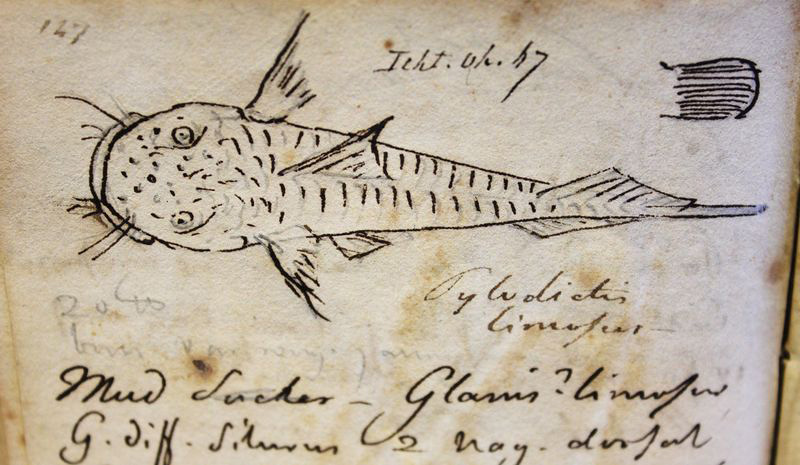 127
Icht. Oh. 47
Pylodictis
limosus
Mud Sucker – Glanis? limosus
G. diff. Silurus 2 nag. dorsal